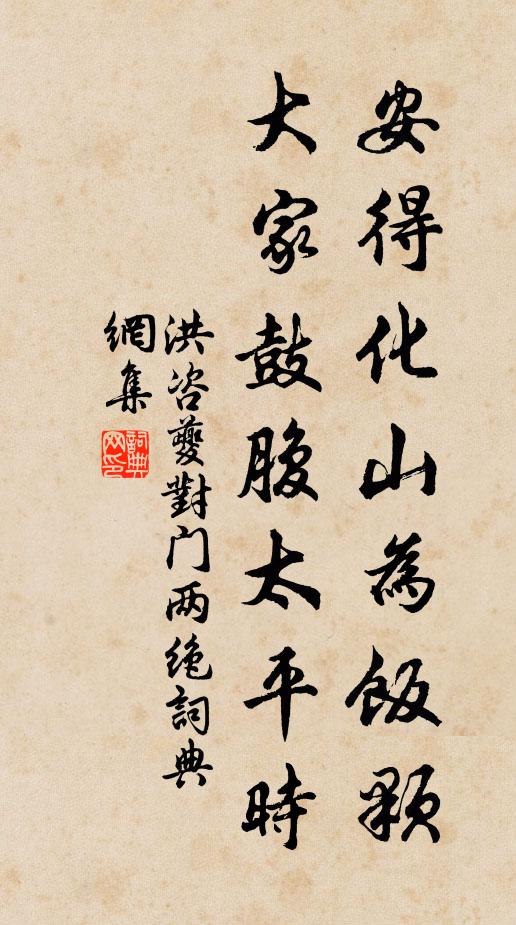 安得化山為飯顆
大家鼓腹太平時
洪咨夔對门两绝詞典
網集
詞典网印